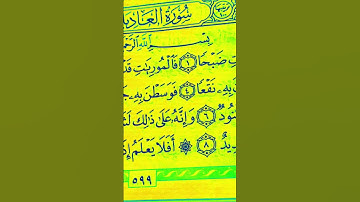 سُورَةُ العَادِيَ
بِسْمِ ٱللَّهِ ٱلرَّحْمَ
تِ ضَبْحًا ١ فَٱلْمُورِيَٰتِ قَدْ
نَ بِهِۦ نَقْعًا ٤ فَوَسَطْنَ بِهِۦ جَ
نُودٌ ٦ وَإِنَّهُۥ عَلَىٰ ذَٰلِكَ لَشَ
دِيدٌ ٨ ۞ أَفَلَا يَعْلَمُ إِذَ
٥٩٩